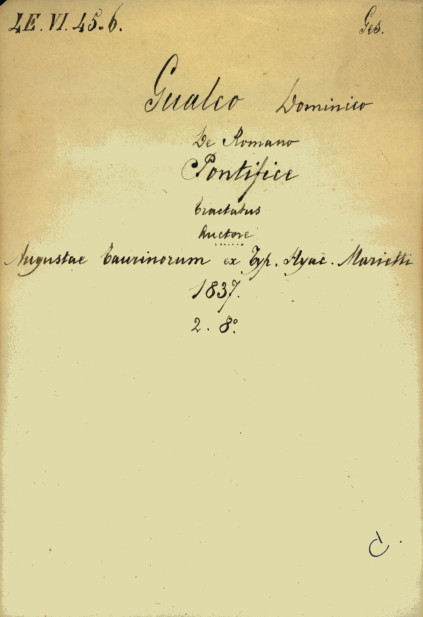 4E. VI. 45-6. Ges.
Gualco Dominico
De Romano
Pontifice
tractatus
Auctore
Augustae Taurinorum ex Typ. Hyac. Marietti
1837.
2. 8º